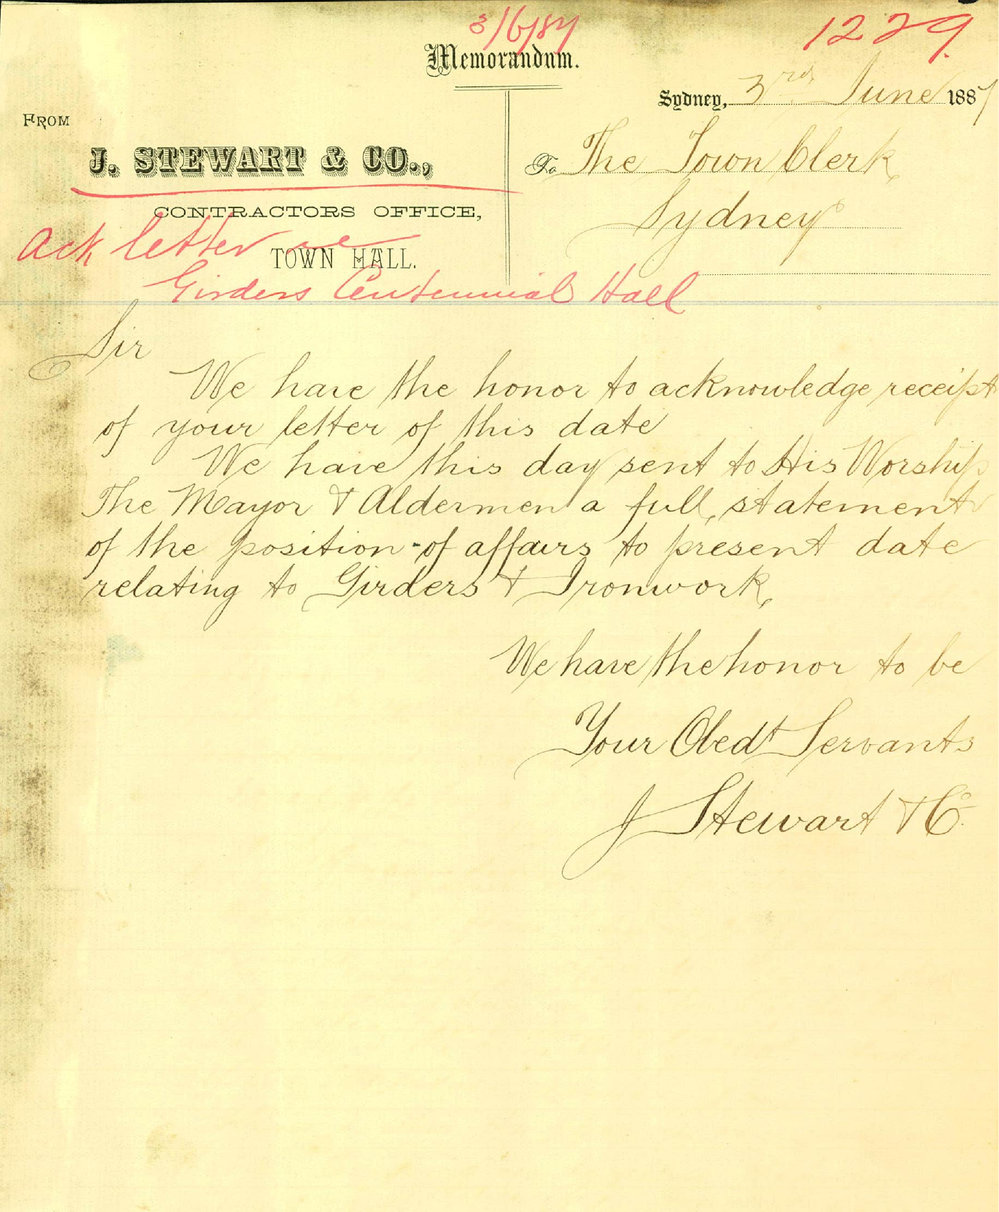 3/6/87
1229.
Memorandum.
Sydney, 3rd June 1887
FROM
J. STEWART & CO.,
CONTRACTORS OFFICE,
TOWN HALL.
To The Town Clerk
Sydney
Ack letter re
Girders Centennial Hall
Sir
We have the honor to acknowledge receipt
of your letter of this date
We have this day sent to His Worship
The Mayor & Aldermen a full, statement
of the position of affairs to present date
relating to Girders & Ironwork,
We have the honor to be
Your Obedt Servants
J Stewart & Co